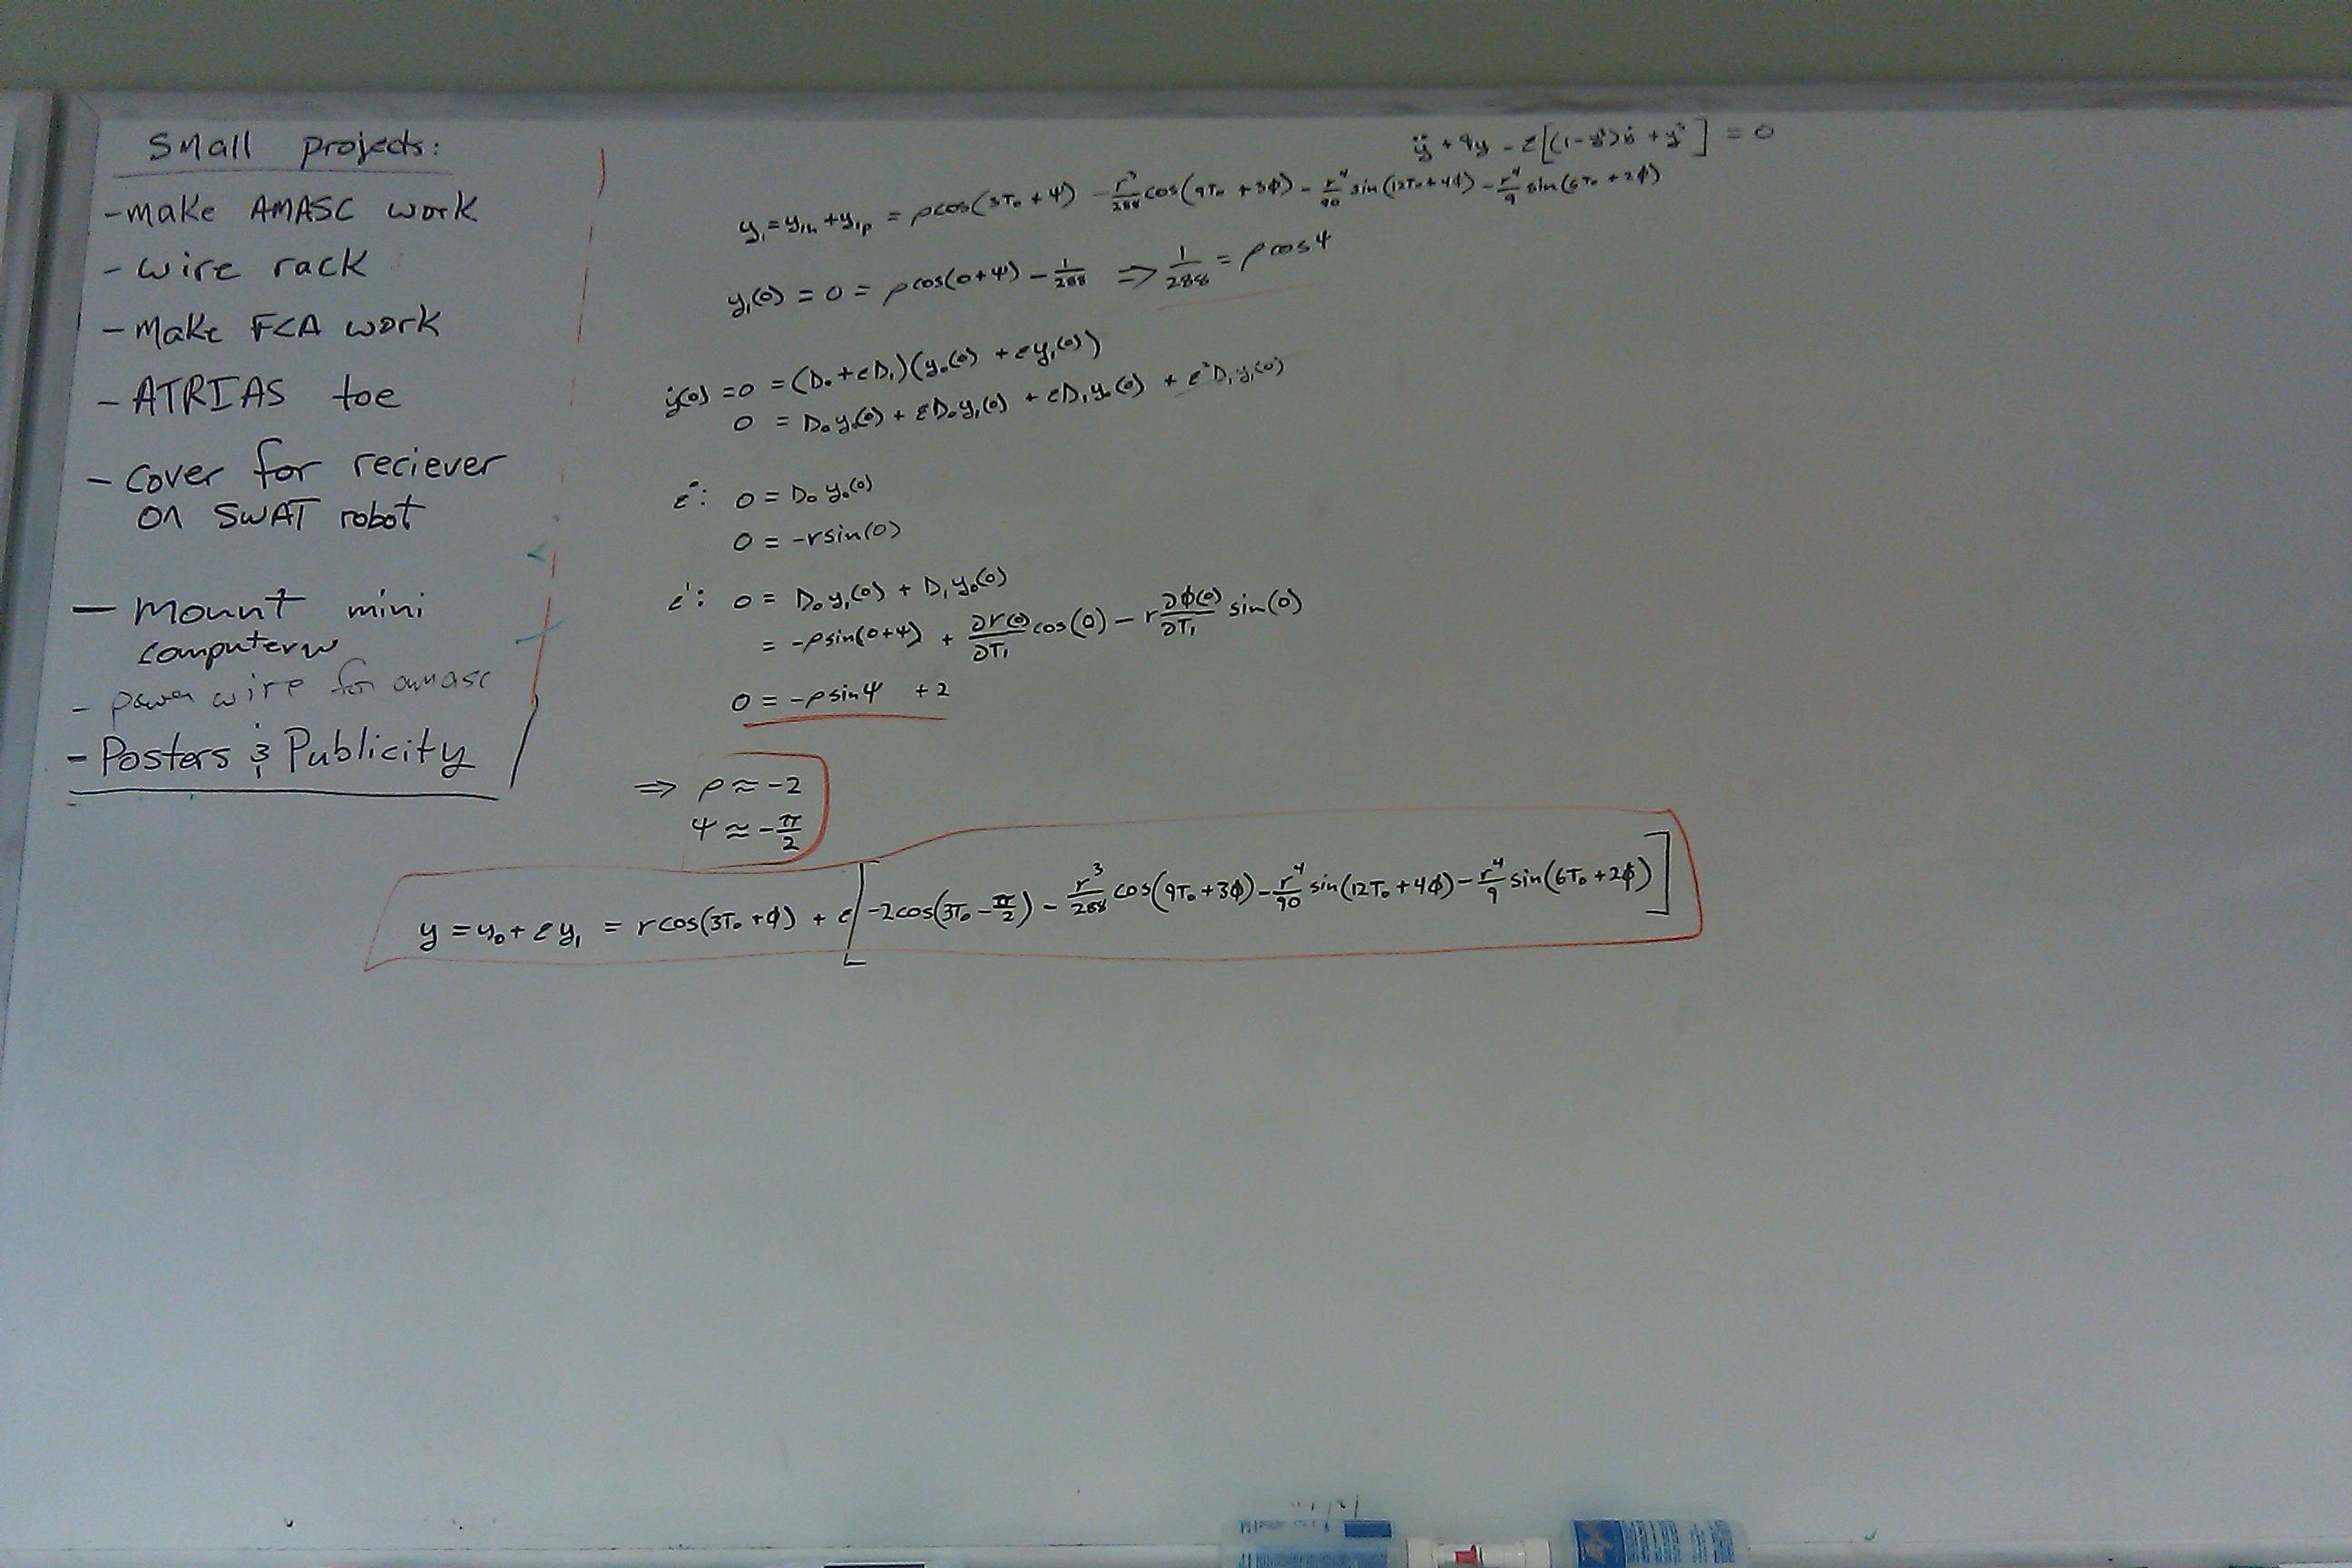 Small projects:
- make AMASC work
- wire rack
- Make FCA work
- ATRIAS toe
- cover for reciever
on SWAT robot
- Mount mini
computer
- power wire for amasc
- Posters & Publicity
ÿ + 9y - ε[(1-y⁴)ẏ + y³] = 0
y₁ = y₁ₕ + y₁ₚ = ρcos(3T₀ + ψ) - r³/288 cos(9T₀ + 3φ) - r⁴/90 sin(12T₀ + 4φ) - r⁴/9 sin(6T₀ + 2φ)
y₁(0) = 0 = ρcos(0+ψ) - 1/288 ⇒ 1/288 = ρcosψ
ẏ(0) = 0 = (D₀ + εD₁)(y₀(0) + εy₁(0))
0 = D₀y₀(0) + εD₀y₁(0) + εD₁y₀(0) + ε²D₁y₁(0)
ε⁰: 0 = D₀y₀(0)
0 = -rsin(0)
ε¹: 0 = D₀y₁(0) + D₁y₀(0)
= -ρsin(0+ψ) + ∂r(0)/∂T₁ cos(0) - r ∂φ(0)/∂T₁ sin(0)
0 = -ρsinψ + 2
⇒ ρ ≈ -2
ψ ≈ -π/2
y = y₀ + εy₁ = rcos(3T₀ + φ) + ε[-2cos(3T₀ - π/2) - r³/288 cos(9T₀ + 3φ) - r⁴/90 sin(12T₀ + 4φ) - r⁴/9 sin(6T₀ + 2φ)]